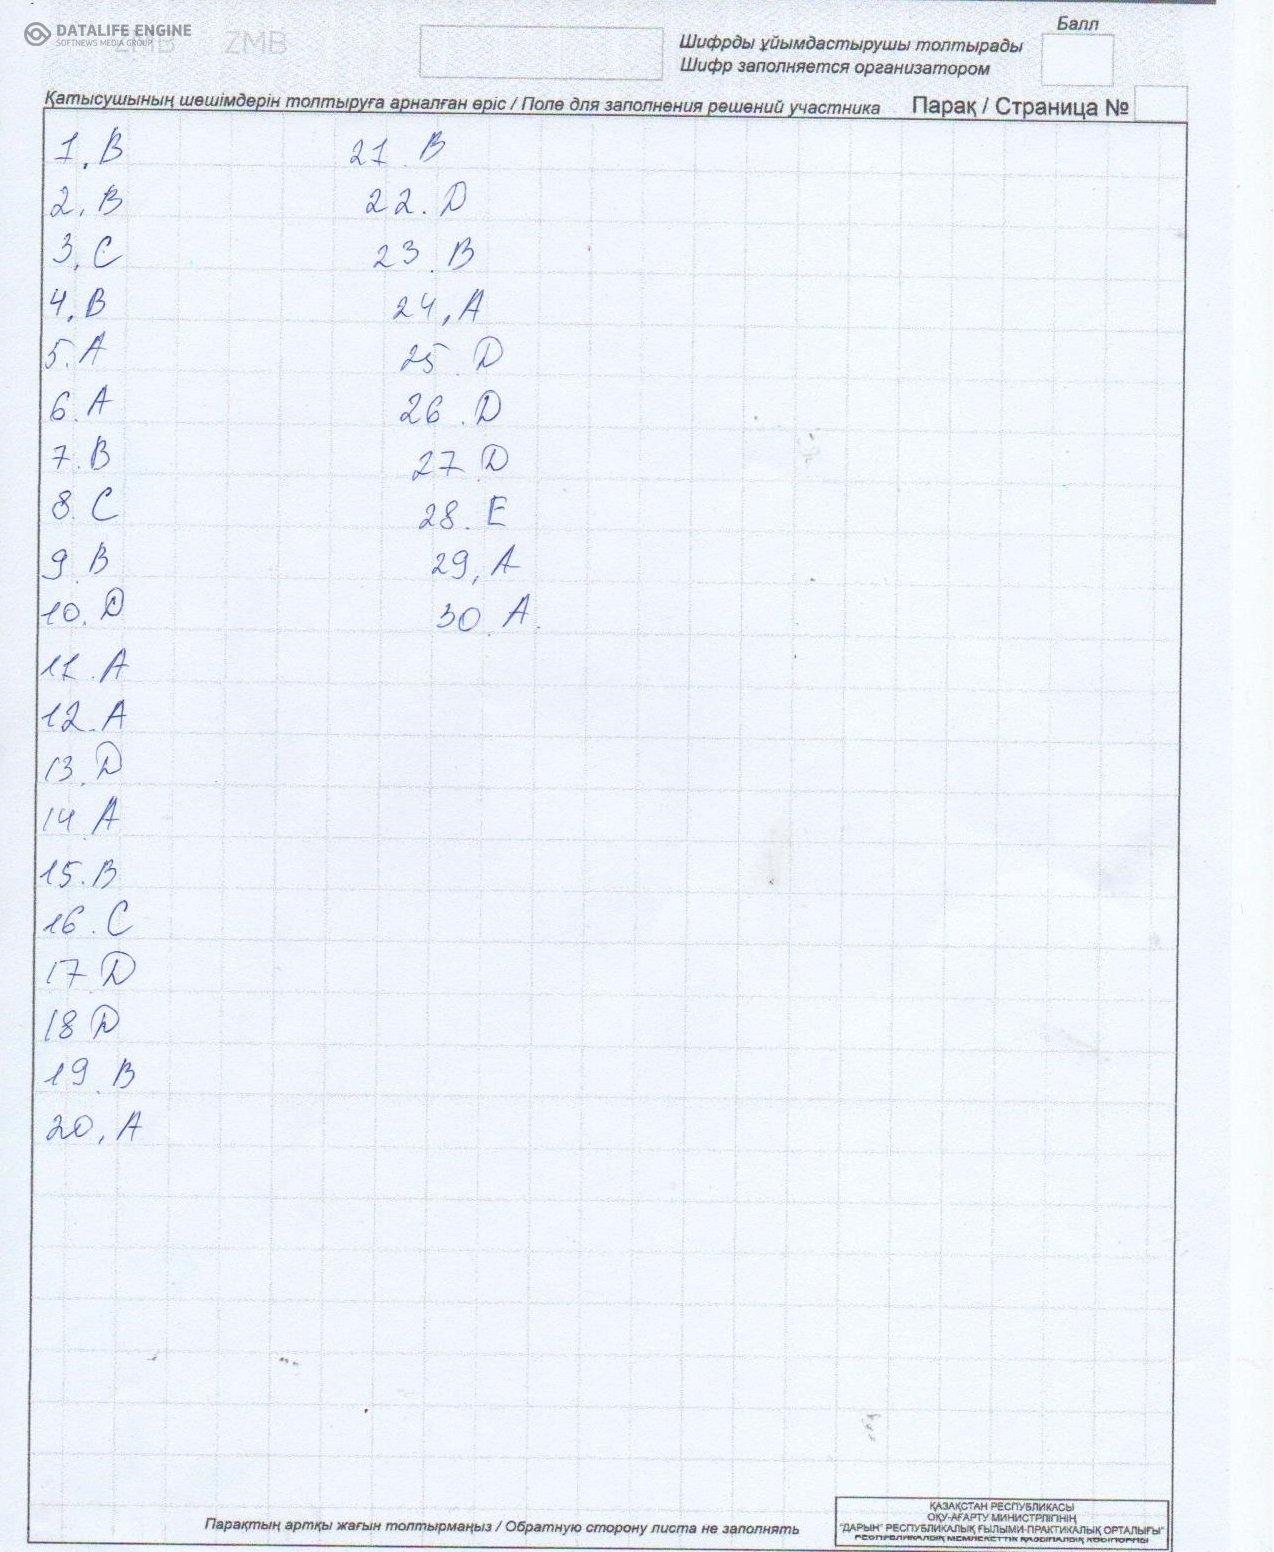 DATALIFE ENGINE
SOFTNEWS MEDIA GROUP
ZMB ZMB
Балл
Шифрды ұйымдастырушы толтырады
Шифр заполняется организатором
Қатысушының шешімдерін толтыруға арналған өріс / Поле для заполнения решений участника Парақ / Страница №
1. B
2. B
3. C
4. B
5. A
6. A
7. B
8. C
9. B
10. D
11. A
12. A
13. D
14. A
15. B
16. C
17. D
18 D
19. B
20, A
21. B
22. D
23. B
24, A
25. D
26. D
27. D
28. E
29, A
30. A.
Парақтың артқы жағын толтырмаңыз / Обратную сторону листа не заполнять
ҚАЗАҚСТАН РЕСПУБЛИКАСЫ
ОҚУ-АҒАРТУ МИНИСТРЛІГІНІҢ
"ДАРЫН" РЕСПУБЛИКАЛЫҚ ҒЫЛЫМИ-ПРАКТИКАЛЫҚ ОРТАЛЫҒЫ"
РЕСПУБЛИКАЛЫҚ МЕМЛЕКЕТТІК ҚАЗЫНАЛЫҚ КӘСІПОРНЫ